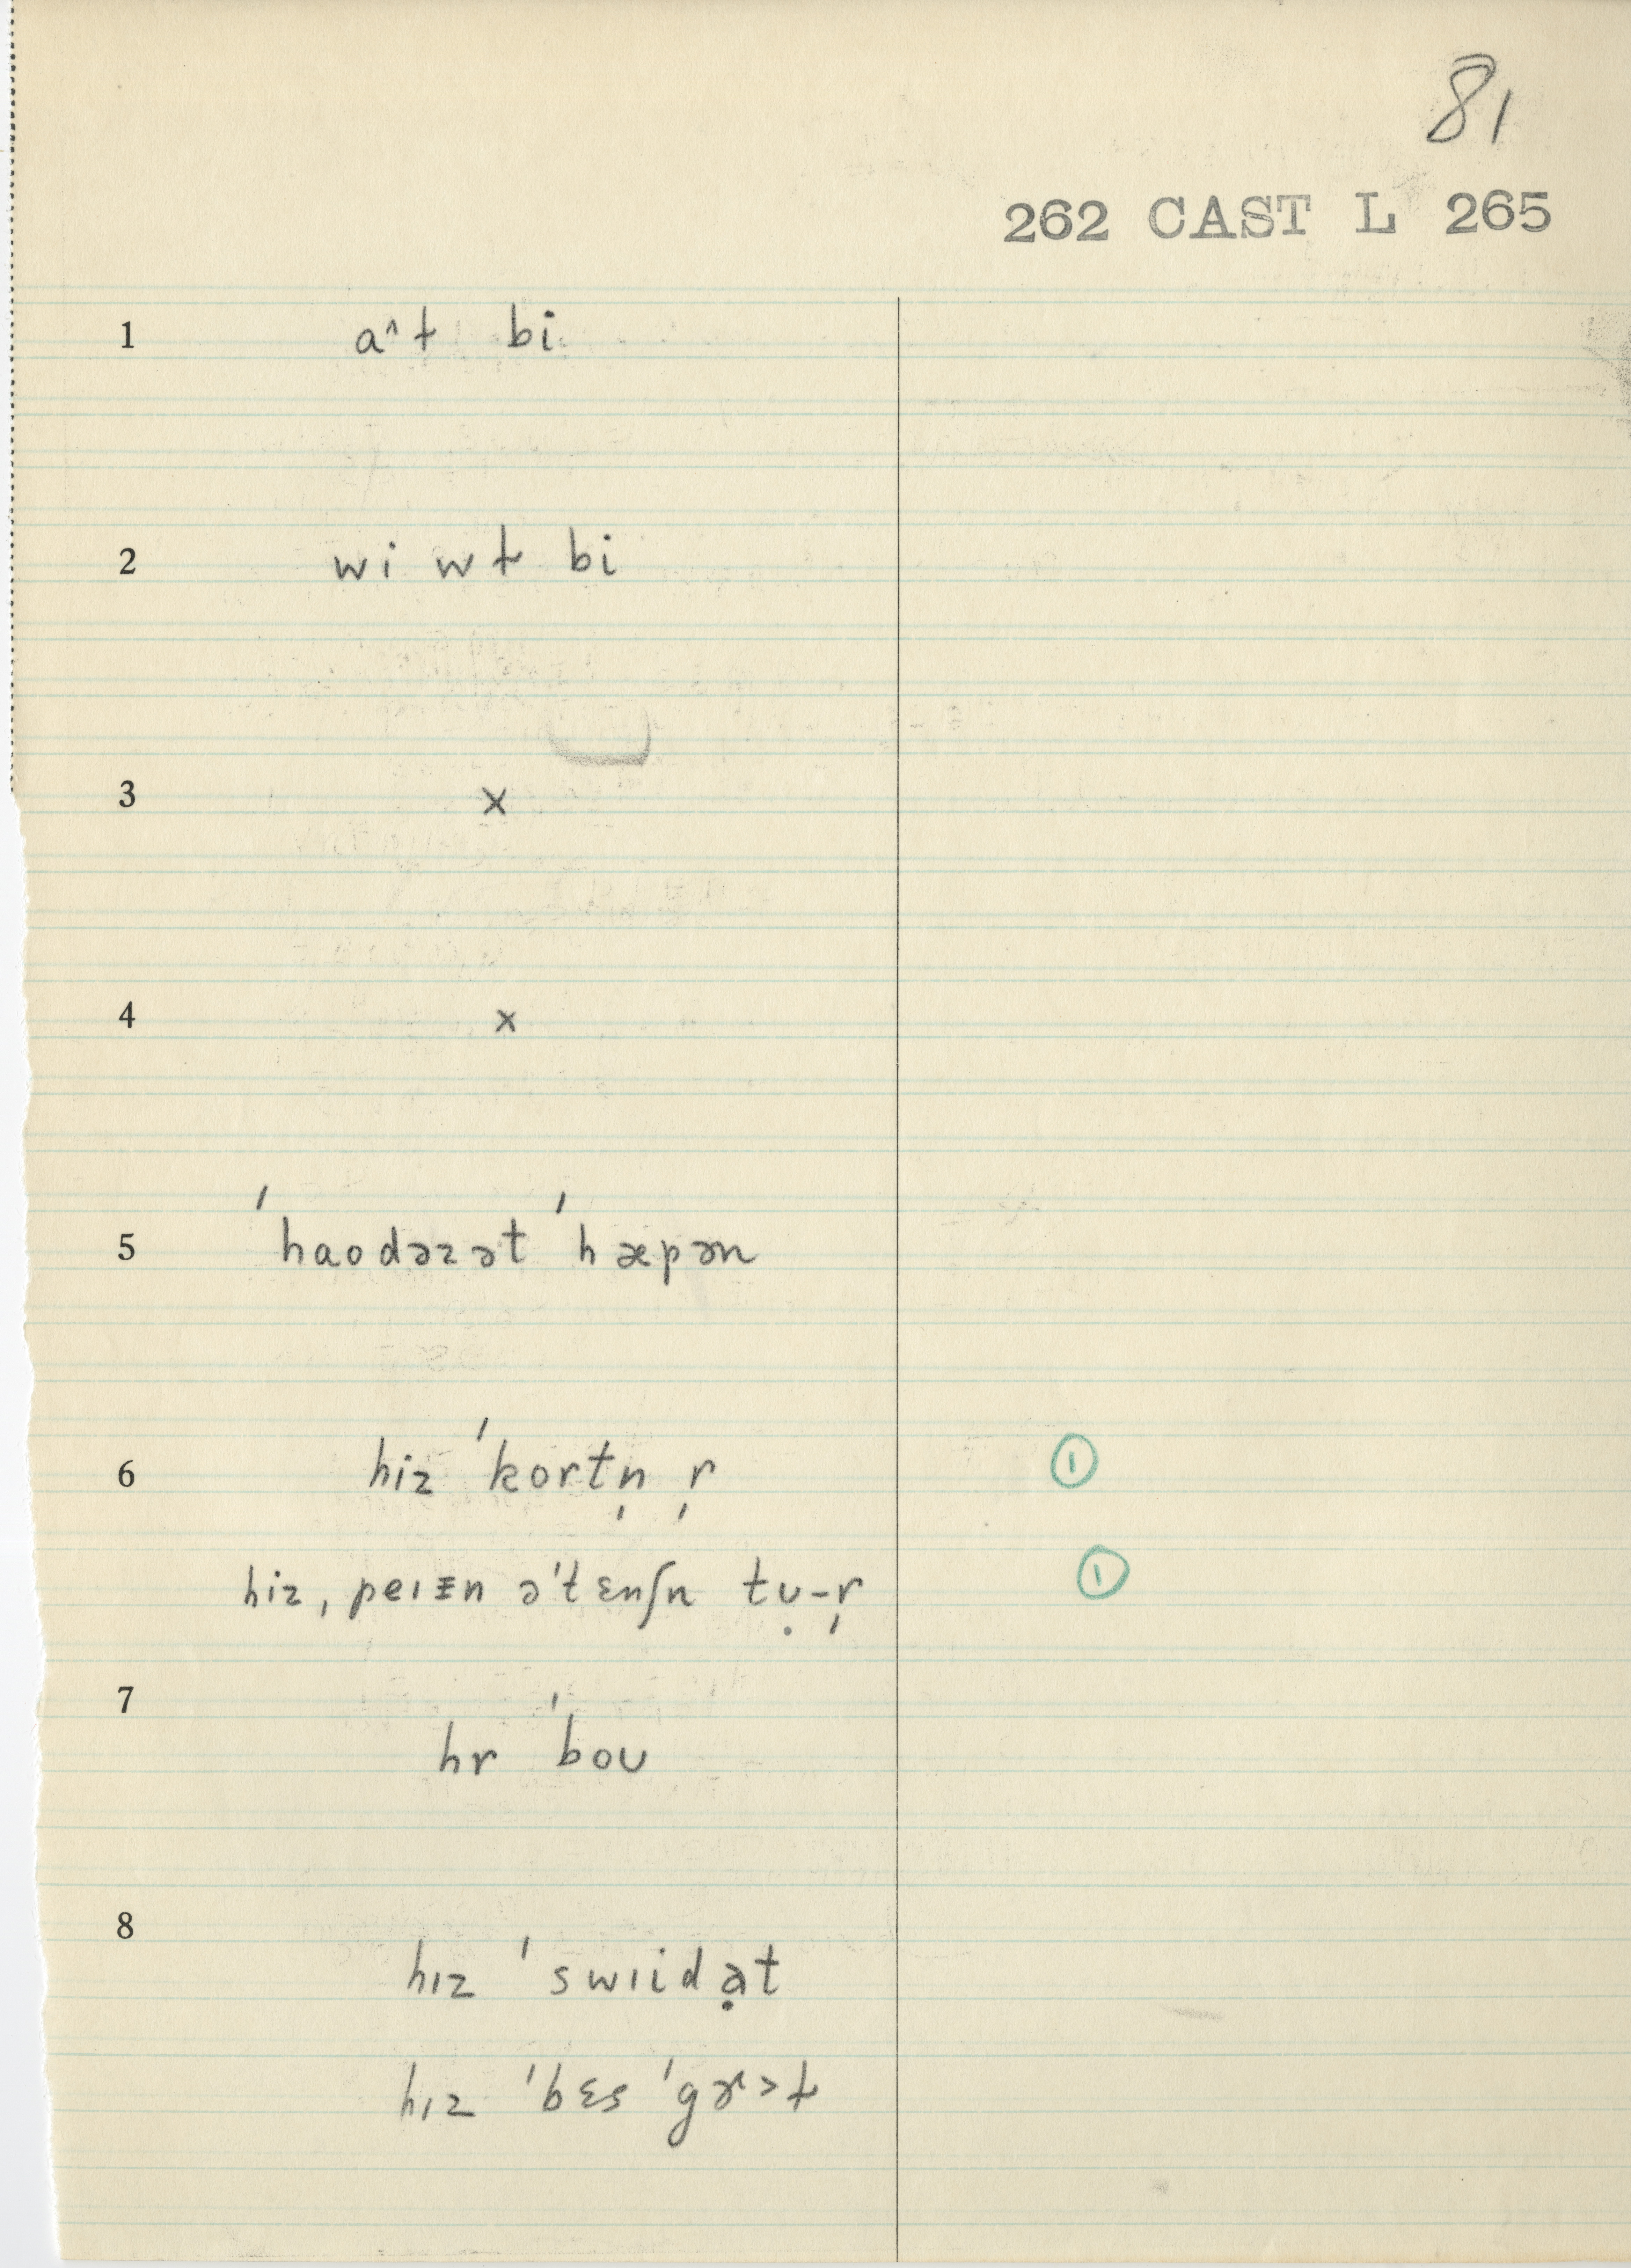 81
262 CAST L 265
1 a^ɫ bi
2 wi wɫ bi
3 x
4 x
5 ˈhaodəzət ˈhæpən
6 hiz ˈkortn̩ r̩ ①
hiz, peɪɪn əˈtɛnʃn tʊ̣-r̩ ①
7 hr ˈboʊ
8 hɪz ˈswɪidə̣t
hɪz ˈbɛs ˈgɚ>ɫ